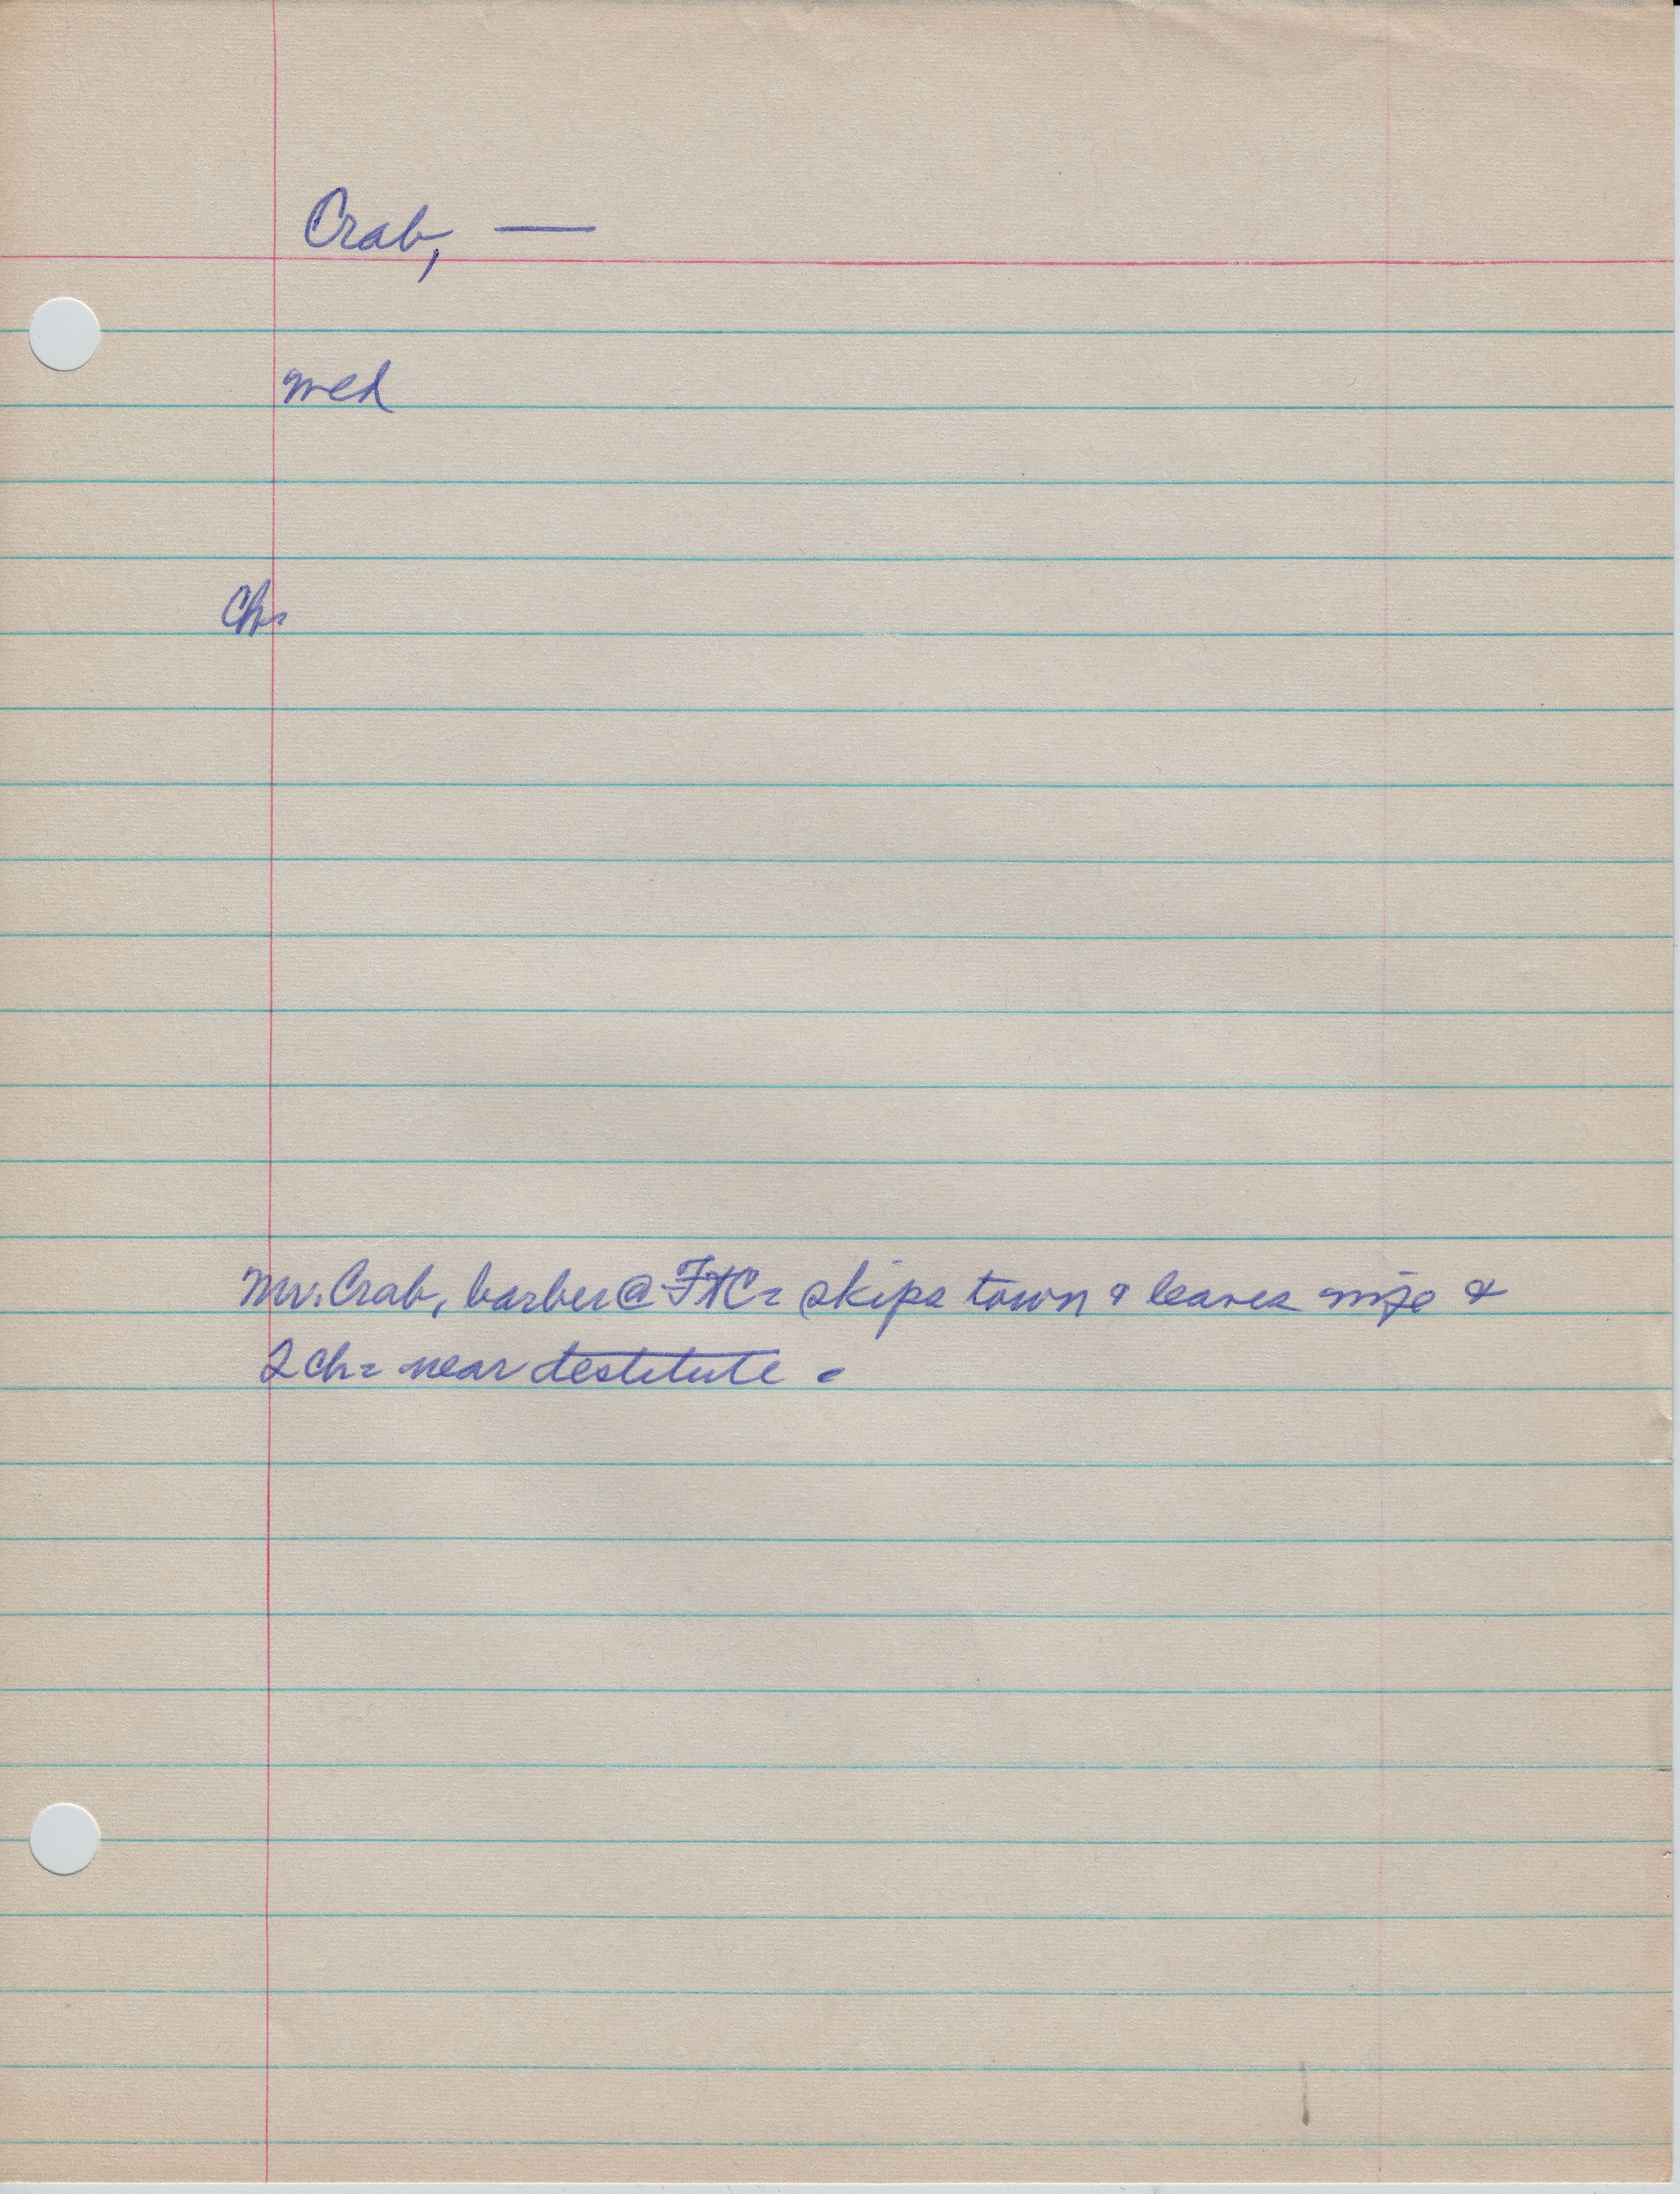 Crab, —
med
Ch=
Mr. Crab, barber @ FtC= skips town & leaves wife &
2 ch= near destitute.